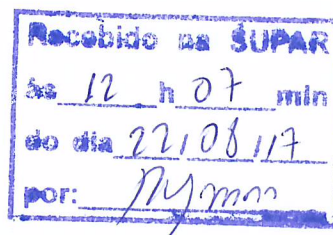 Recebido na SUPAR
às 12 h 07 min
do dia 22/08/17
por: